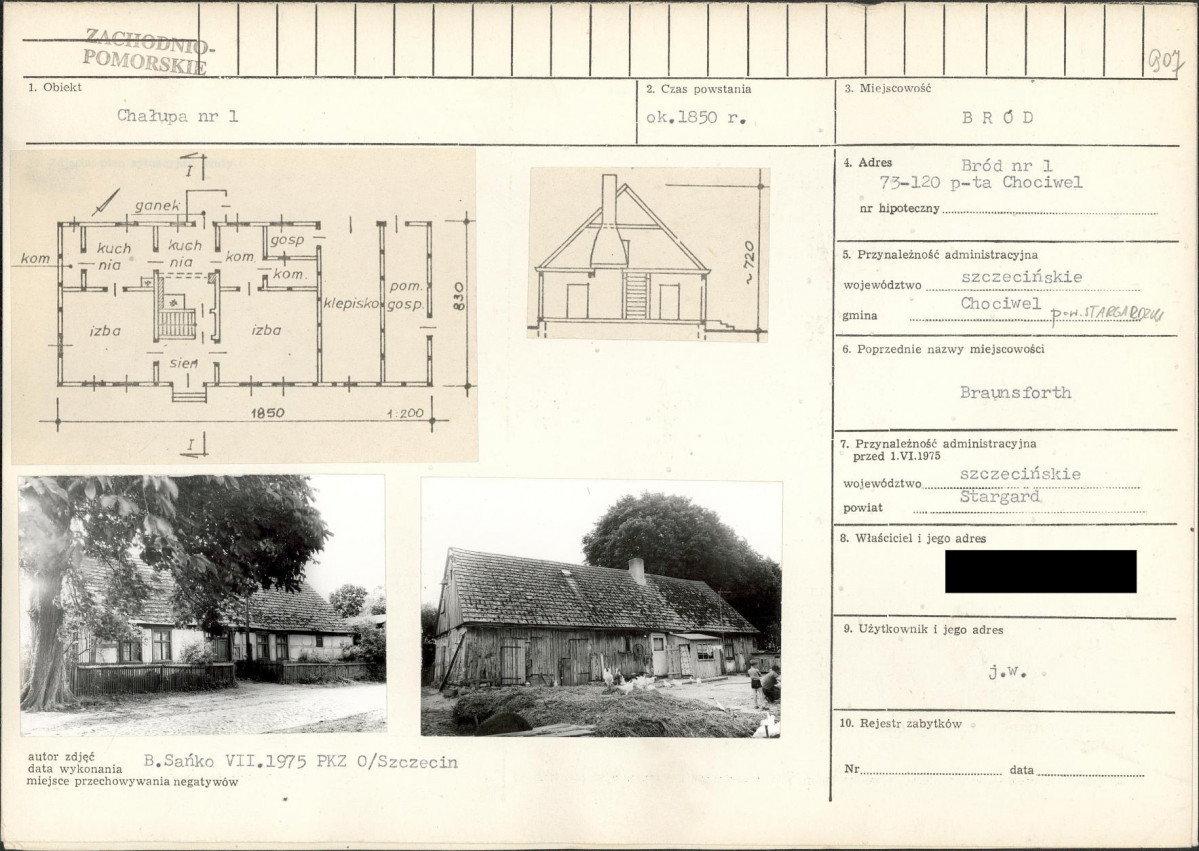 ZACHODNIO-
POMORSKIE
907
1. Obiekt
Chałupa nr 1
2. Czas powstania
ok.1850 r.
3. Miejscowość
BRÓD
I
ganek
kom
kuch
nia
kuch
nia
kom.
gosp
kom.
izba
izba
klepisko
pom.
gosp.
sień
830
1850
1:200
I
~720
4. Adres Bród nr 1
73-120 p-ta Chociwel
nr hipoteczny
5. Przynależność administracyjna
województwo szczecińskie
gmina Chociwel pow. STARGARDZKI
6. Poprzednie nazwy miejscowości
Braunsforth
7. Przynależność administracyjna
przed 1.VI.1975
województwo szczecińskie
powiat Stargard
8. Właściciel i jego adres
9. Użytkownik i jego adres
j.w.
10. Rejestr zabytków
Nr data
autor zdjęć
data wykonania B.Sańko VII.1975 PKZ O/Szczecin
miejsce przechowywania negatywów